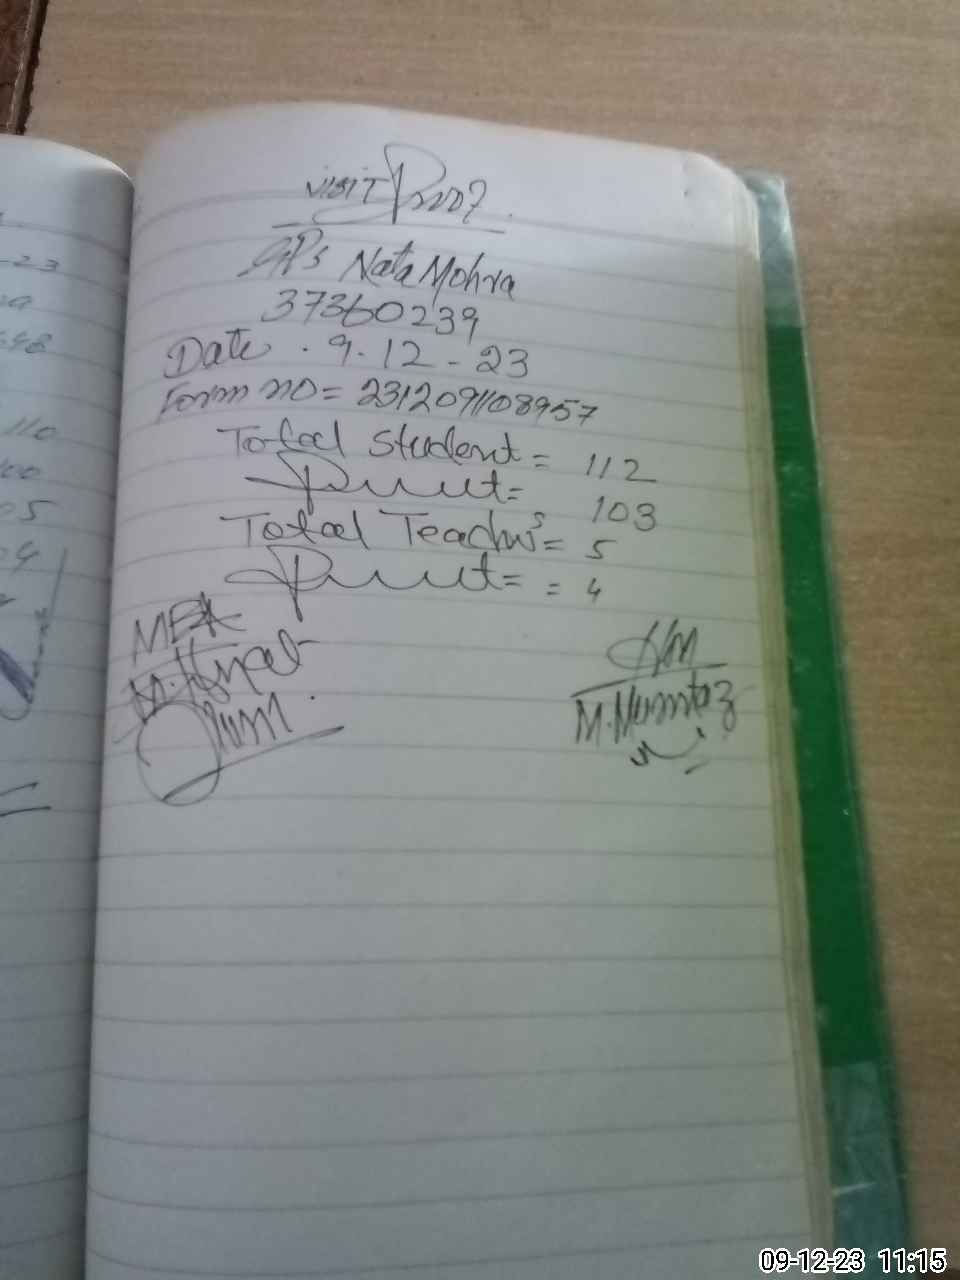 -23
110
05
VISIT Proof
GPS Nata Mohra
37360239
Date . 9.12-23
Form no = 2312091108957
Total Student = 112
Present = 103
Total Teachers = 5
Present = = 4
MEA
HM
M. Mumtaz
09-12-23 11:15